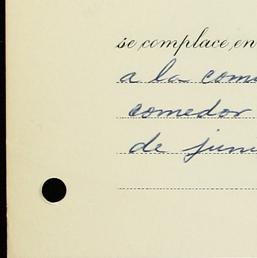 se complace en
a la comi
comedor
de juni